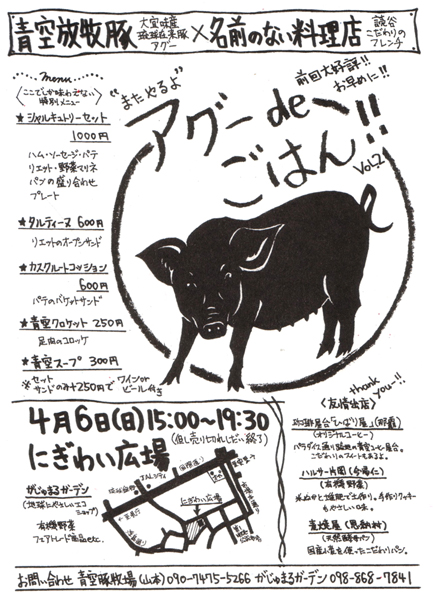 青空放牧豚 大宜味産 琉球在来豚 アグー × 名前のない料理店 読谷 こだわりの フレンチ
menu
ここでしか味わえない
特別メニュー
★シャルキュトリーセット
1000円
ハム・ソーセージ・パテ
リエット・野菜マリネ
パンの盛り合わせ
プレート
★タルティーヌ 600円
リエットのオープンサンド
★カスクルートコション
600円
パテのバゲットサンド
★青空コロッケ 250円
足肉のコロッケ
★青空スープ 300円
※セット
サンドのみ+250円で ワインor ビール付き
"またやるよ"
前回大好評!!
お早めに!!
アグー de
ごはん!!
Vol.2
4月6日(日) 15:00~19:30
(但し売り切れしだい終了)
にぎわい広場
がじゅまるガーデン
(地球にやさしいエコショップ)
有機野菜
フェアトレード商品etc.
JALシティ
国際通り
にぎわい広場
thank you~!!
<友情出店>
珈琲屋台「ひばり屋」(那覇)
(オリジナルコーヒー)
パラダイス通り路地の青空コーヒー屋台。
こだわりのスイートもあるよ。
ハルサー片岡(今帰仁)
(有機野菜)
もやさしい味。
(天然酵母パン)
国産小麦を使ったこだわりパン。
お問い合わせ 青空豚牧場(山本) 090-7475-5266 がじゅまるガーデン 098-868-7841